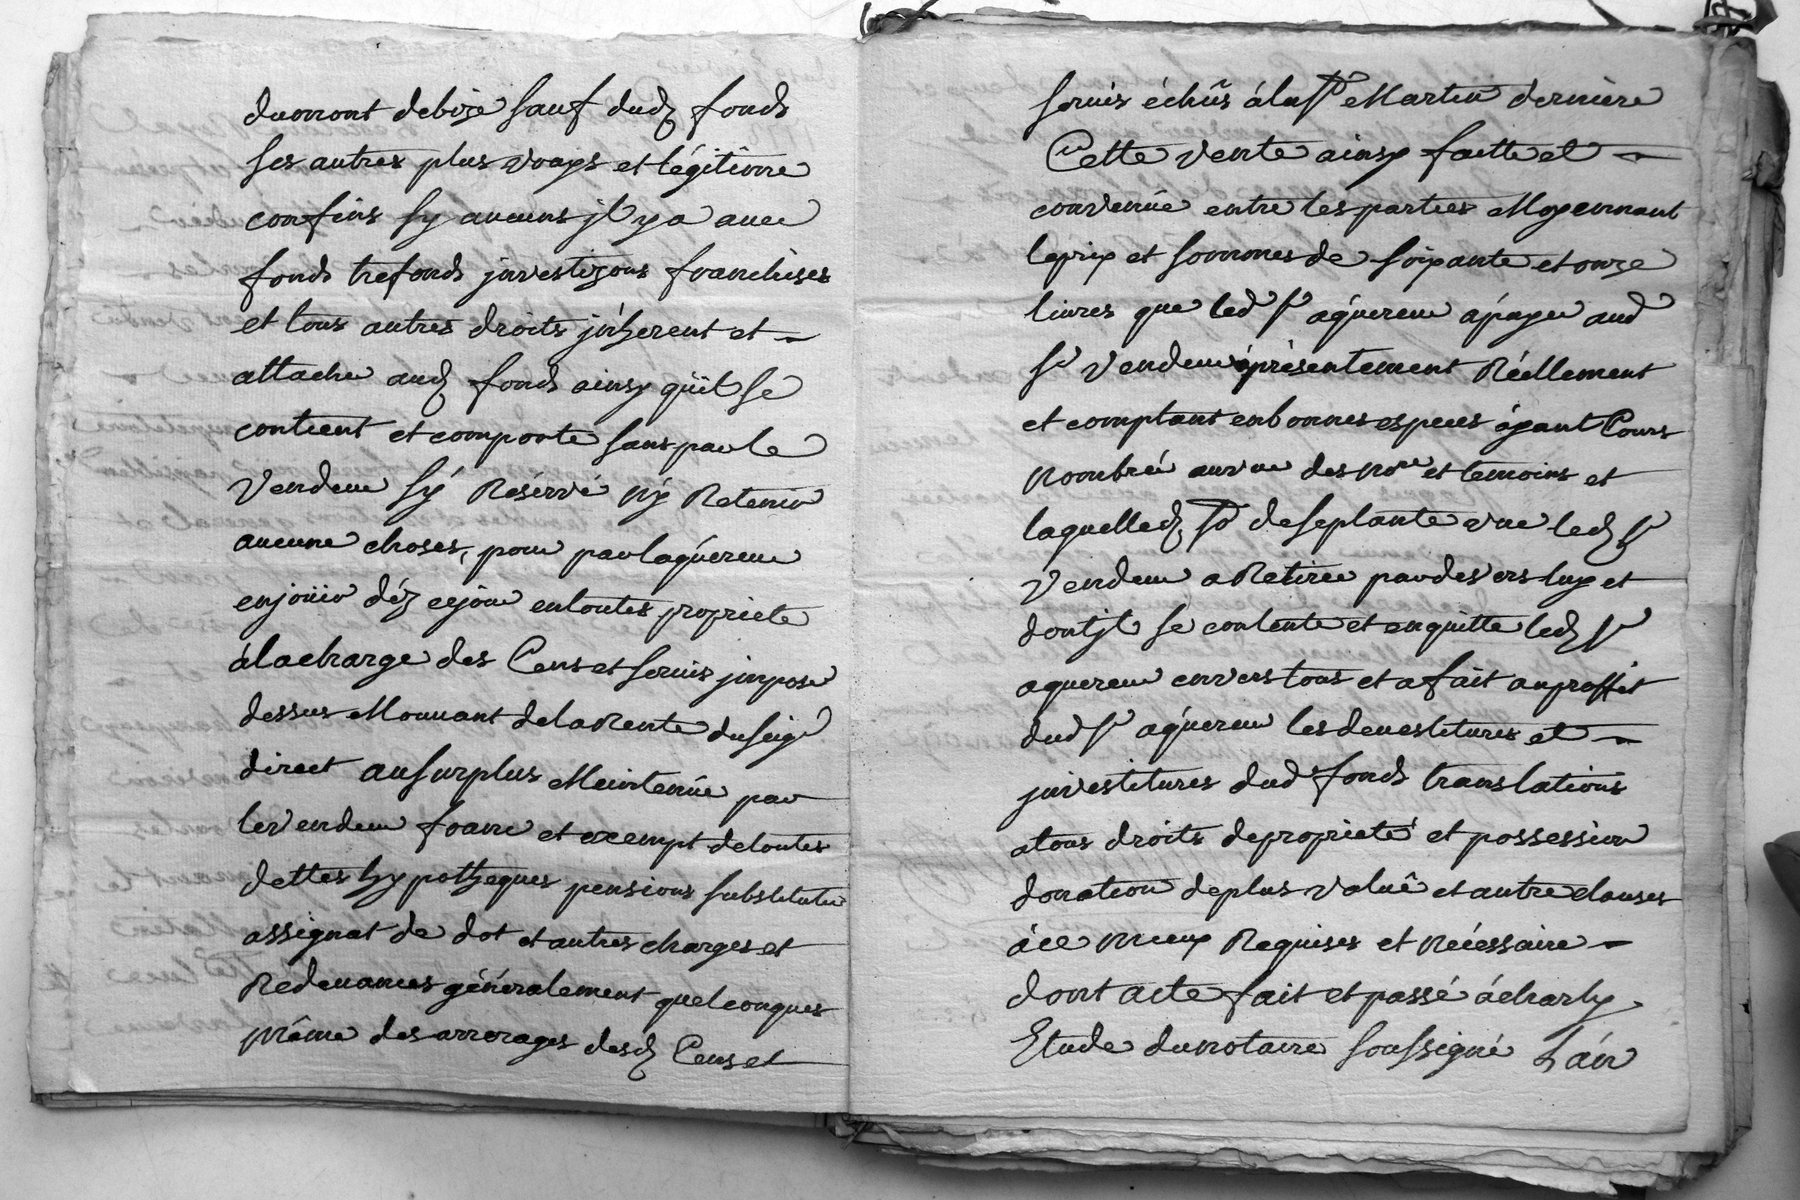 dumont debize sauf dud fonds
ses autres plus vrays et légitime
confins sy aucuns jl y a avec
fonds trefonds jnvestizons franchises
et tous autres droits jnherent et
attache aud fonds ainsy quil se
contient et comporte sans par le
Vendeur sÿ Réservé nÿ Retenir
aucune choses, pour par laquereur
en joüir déz ce jour en toutes propriete
á la charge des Cens et servis jmpose
dessus Mouuant de la Rente du seigr
direct au surplus Meintenüe par
le vendeur franc et exempt de toutes
dettes hypotheques pensions substitution
assignat de dot et autres charges et
Redeuances généralement quelconques
même des arrerages desd Cens et
servis échûs á la st Martin derniere
Cette vente ainsy faitte et
convenüe entre les parties Moyennant
le prix et sommes de soixante et onze
livres que led sr aquereur a payer aud
sr Vendeur présentement Réellement
et comptant en bonnes especes áyant Cours
nombrée au vue des nore et temoins et
laquelled so de septante une led sr
Vendeur a Retirée par devers luy et
dont jl se contente et en quitte led sr
aquereur envers tous et a fait au proffit
dud sr aquereur les devestitures et
jnvestitures dud fonds translations
a tous droits de proprieté et possession
donation de plus valuë et autre clauses
á ce mieux Requises et nécessaire
dont acte fait et passé á charly
Etude du notaire soussigné Lán